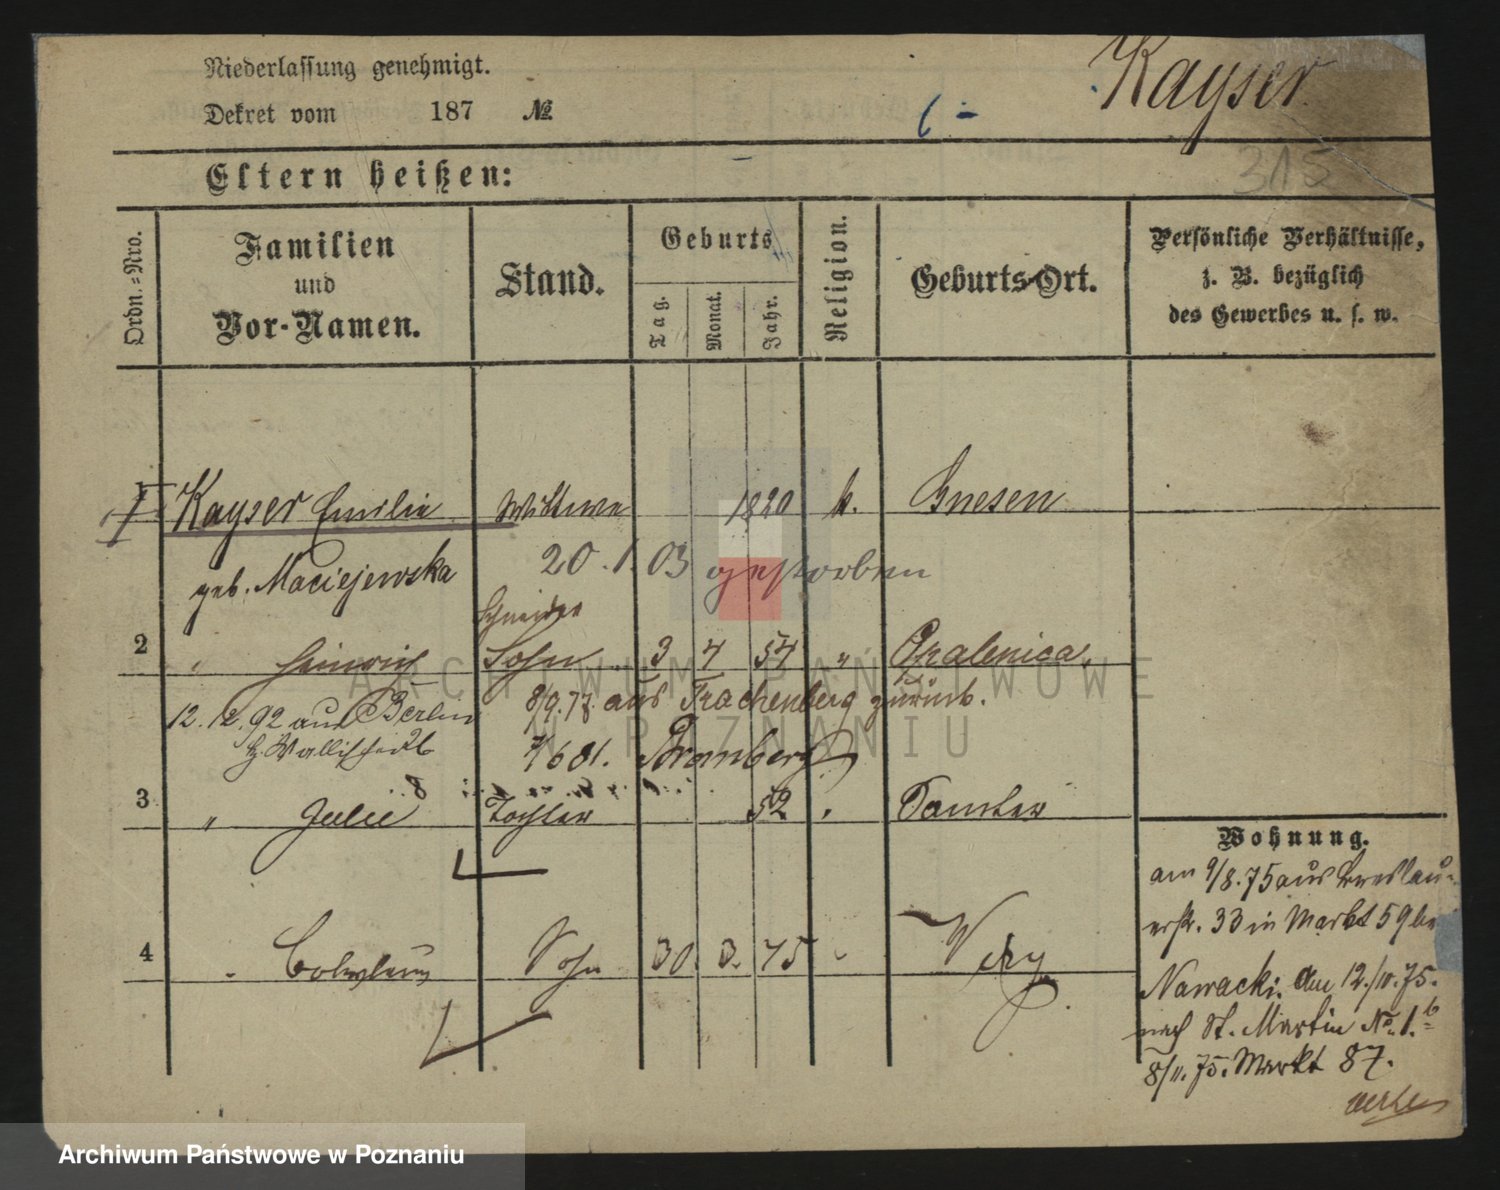 Niederlassung genehmigt.
Kayser
Dekret vom 187 №
315
Eltern heißen:
Ordn.-Nro.
Familien und Vor-Namen.
Stand.
Geburts
Tag.
Monat.
Jahr.
Religion.
Geburts-Ort.
Persönliche Verhältnisse, z. B. bezüglich des Gewerbes u. s. w.
1 Kayser Emilie Wittwe 1820 k. Gnesen
geb. Maciejewska 20.1.03 gestorben
Schneider
2 " Heinrich Sohn 3 4 54 " Opalenica.
12.12.92 aus Berlin 8/9.77. aus Trachenberg zurück.
Wallischei 7/6 81. Bromberg
3 " Julie Tochter 52 " Samter
Wohnung.
am 9/8.75 aus Breslau-
erstr. 33 in Markt 59 bei
4 " Sohn 30 3. 75 "
Nawacki. Am 12./10.75.
nach St. Martin No. 1.
8/11.75. Markt 87.
ARCHIWUM PAŃSTWOWE
W POZNANIU
Archiwum Państwowe w Poznaniu